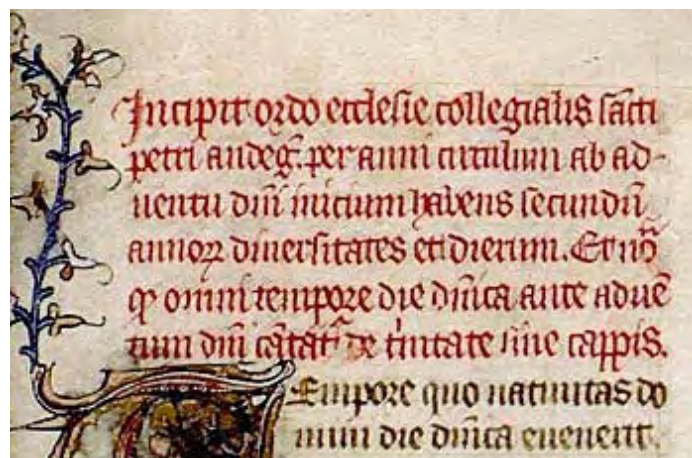 Incipit ordo ecclesie collegialis sancti
petri andeg. per anni circulum ab ad-
uentu dni inicium habens secundu
annorꝝ diuersitates et dierum. Et
ꝙ omni tempore die dnica ante aduē
tum dni cātat de tinitate sine cappis.
Tempore quo natiuitas do
mini die dnica euenerit.